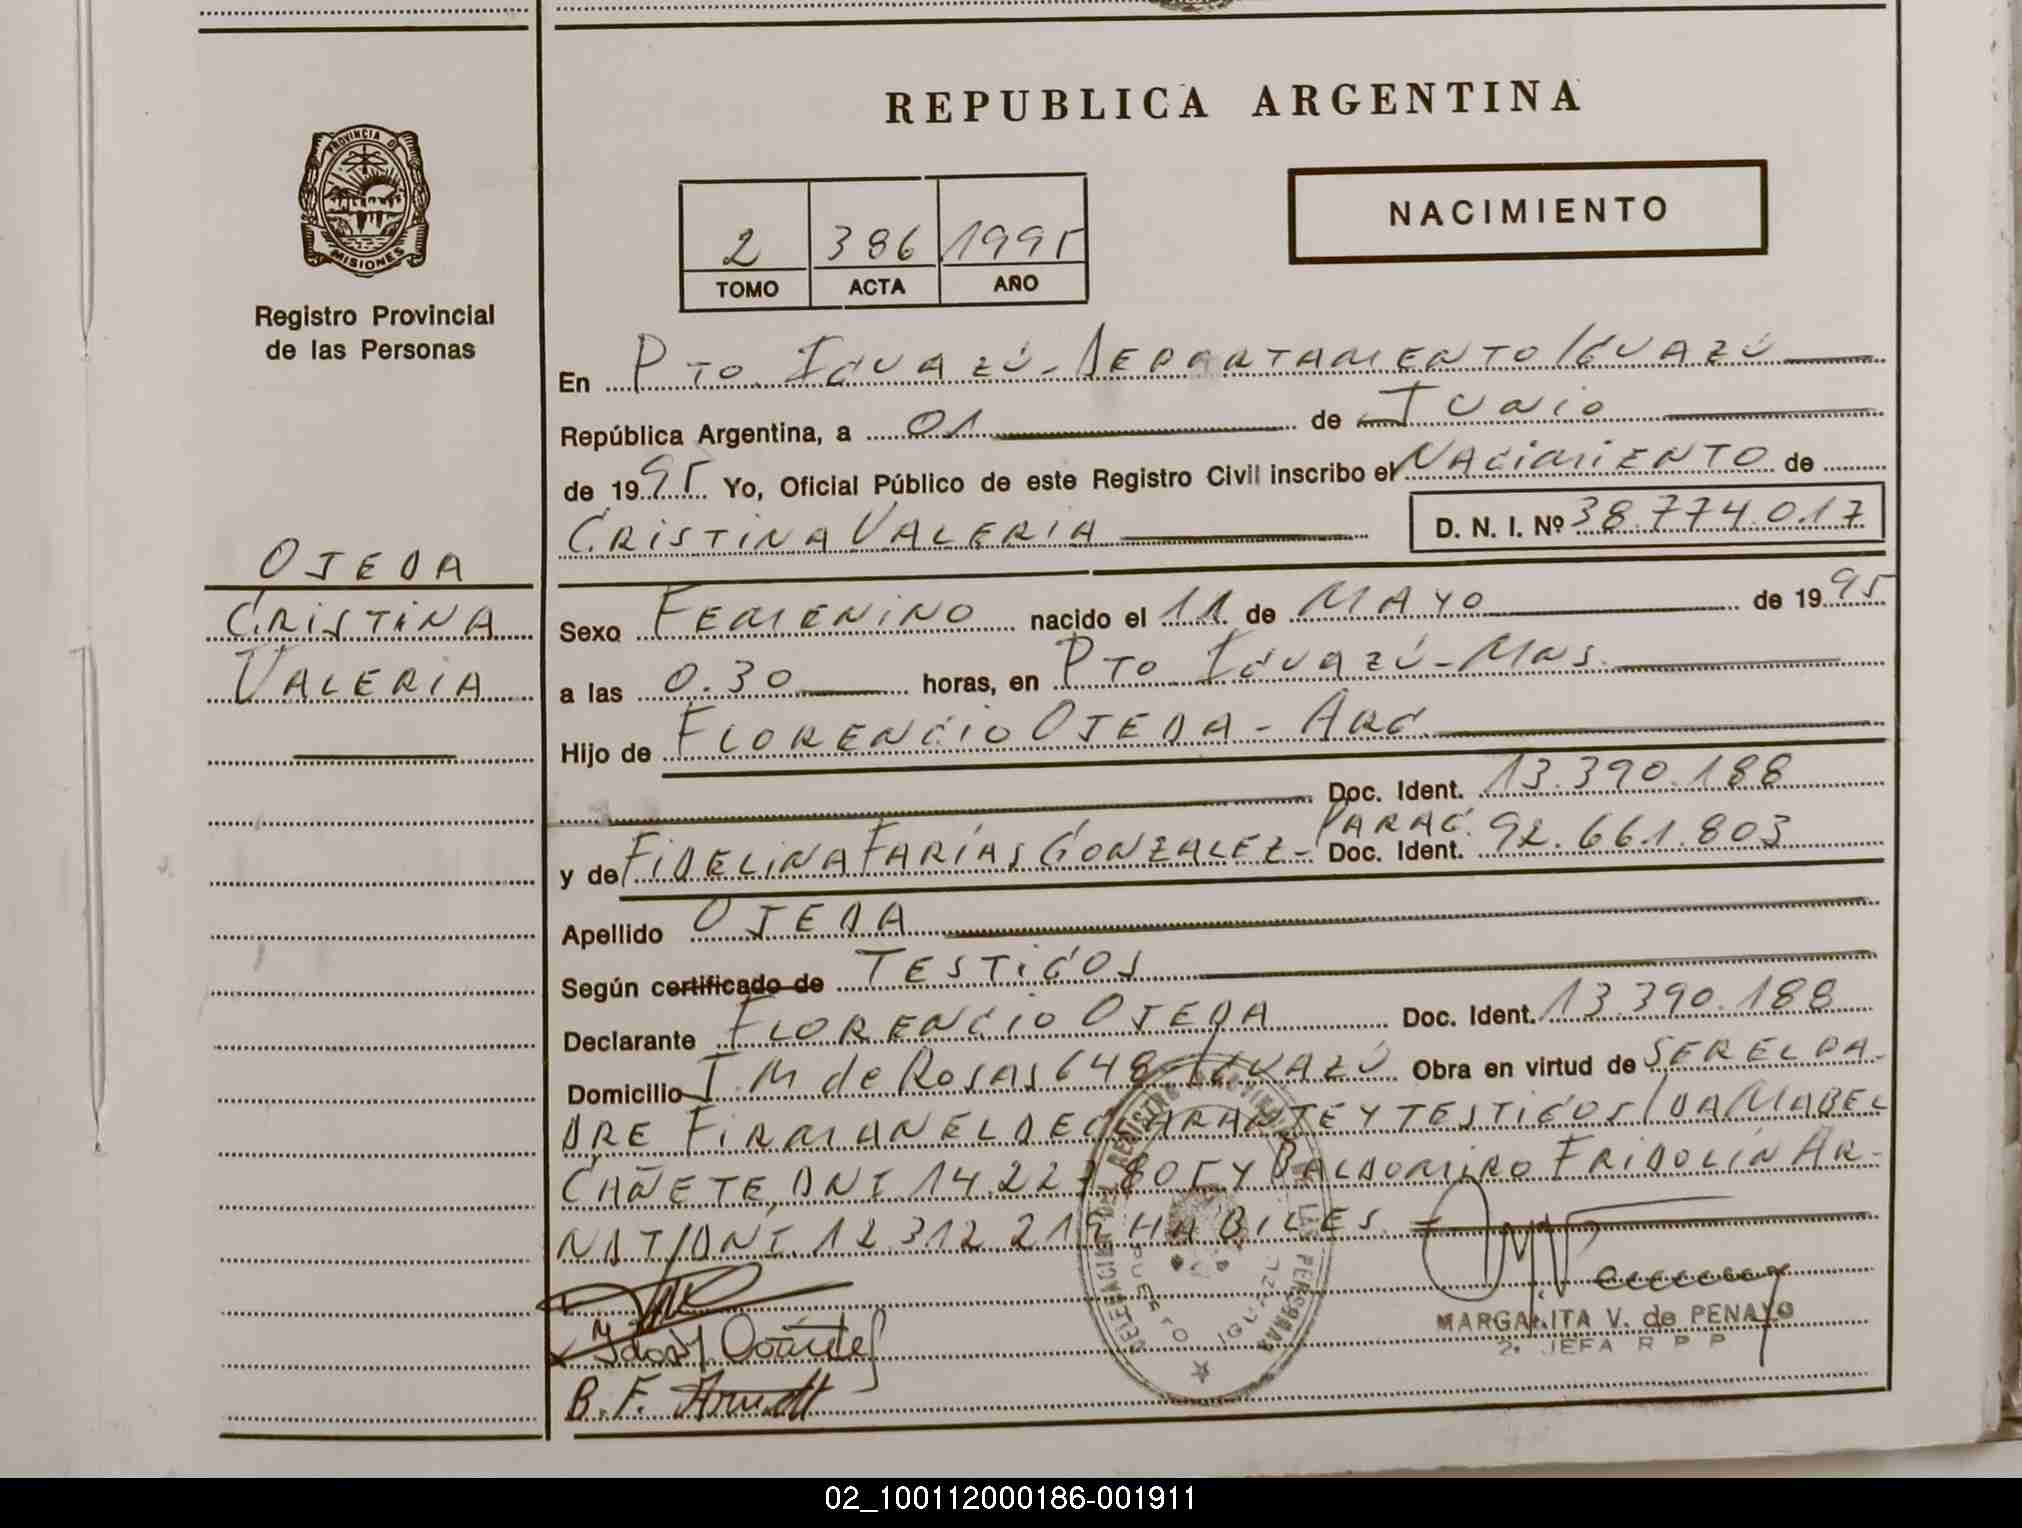 REPUBLICA ARGENTINA
PROVINCIA DE MISIONES
Registro Provincial
de las Personas
NACIMIENTO
2 386 1995
TOMO ACTA AÑO
En Pto. Iguazú - Departamento Iguazú
República Argentina, a 01 de Junio
de 1995 Yo, Oficial Público de este Registro Civil inscribo el Nacimiento de
Cristina Valeria D. N. I. Nº 38.774.017
OJEDA
CRISTINA
VALERIA
Sexo Femenino nacido el 11 de Mayo de 1995
a las 0.30 horas, en Pto. Iguazú - Mns.
Hijo de Florencio Ojeda - Arg.
Doc. Ident. 13.390.188
y de Fidelina Farías Gonzalez - Parag. Doc. Ident. 92.661.803
Apellido Ojeda
Según certificado de Testigos
Declarante Florencio Ojeda Doc. Ident. 13.390.188
Domicilio J. M de Rosas 648 Iguazú Obra en virtud de ser el pa-
dre Firman el declarante y testigos Ida Mabel
Cañete, DNI 14.22 805 y Baldomiro Fridolín Ar-
DNI. 12.312.219 Habiles.
B. F. Arndt
DELEGACION DEL REGISTRO PROVINCIAL DE LAS PERSONAS
PUERTO IGUAZU
MARGARITA V. de PENAYO
2ª JEFA R P P
02_100112000186-001911